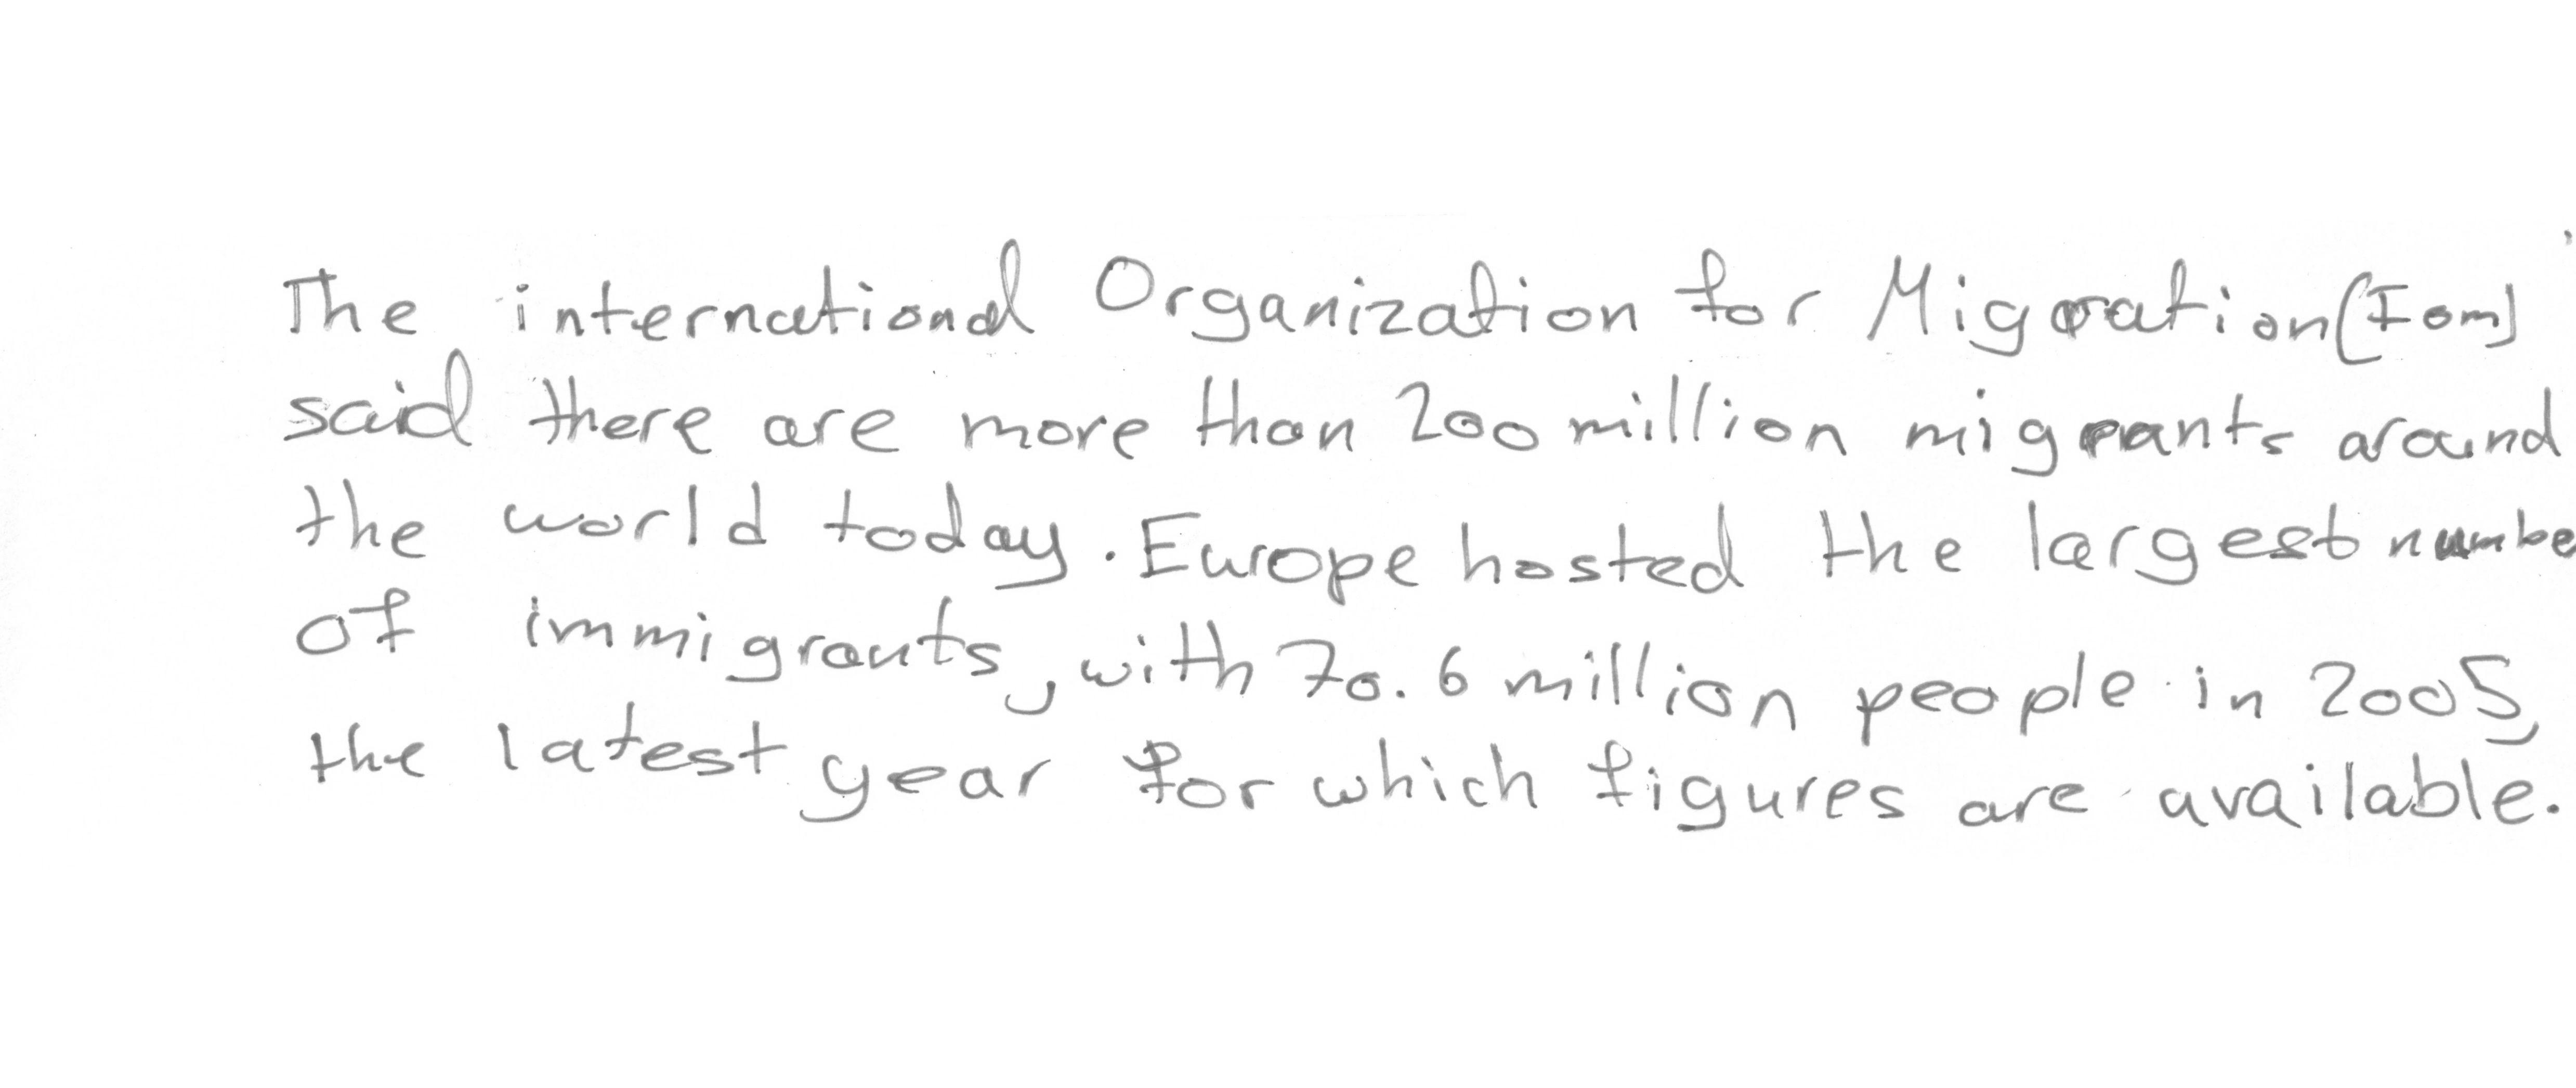 The international Organization for Migration (Iom)
said there are more than 200 million migrants around
the world today. Europe hosted the largest numbe
of immigrants, with 70.6 million people in 2005,
the latest year for which figures are available.